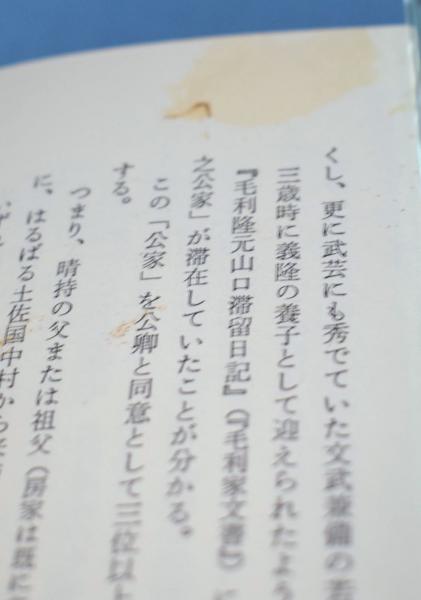 くし、更に武芸にも秀でていた文武兼備の若
三歳時に義隆の養子として迎えられたよう
『毛利隆元山口滞留日記』(『毛利家文書』)に
之公家」が滞在していたことが分かる。
この「公家」を公卿と同意として三位以上
する。
つまり、晴持の父または祖父(房家は既に
に、はるばる土佐国中村から